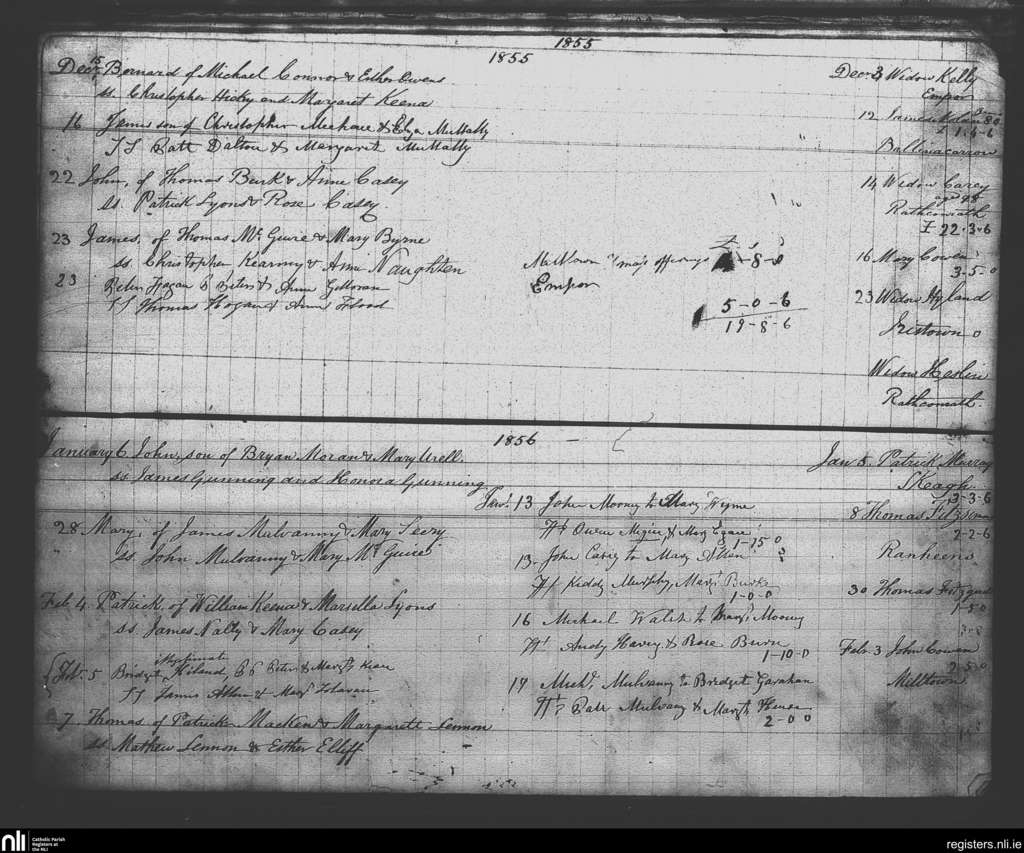 1855
1855
Decr 15 Bernard of Michael Connor & Esther Owens
ss. Christopher Hicky and Margaret Keena
16 James son of Christopher & Eliza McNally
SS Patt Dalton & Margarit McNally
22 John, of Thomas Burk & Anne Casey
ss. Patrick Lyons & Rose Casey.
23 James, of Thomas Mc Guire & Mary Byrne
ss. Christopher Kearny & Anne Naughten
23 Peter Hagan Peter & Anne
SS Thomas Hogan & Anne Flood
Milltown Xmas offerings -8-0
Empor
5-0-6
19-8-6
Decr 3 Widow Kelly
Empor
12 James 80
£ 1-4-6
Ballinacarrow
14 Widow Carey
age 98
Rathconrath
£ 22-3-6
16 Mary Cowen
3-5-0
23 Widow Hyland
Iristown 0
Widow Heslin
Rathconrath.
1856
January 6 John, son of Bryan Moran & Mary Urell.
ss. James Gunning and Honora Gunning
28 Mary, of James Mulvanny & Mary Seery
ss. John Mulvanny & Mary Mc Guire
Feb. 4. Patrick, of William Keena & Marsella Lyons
ss. James Nally & Mary Casey
Feb. 5 illegitimate
Bridget Hiland, Peter & Margt Kean
SS James Allen & Mary
7 Thomas of Patrick Macken & Margarett Lennon
ss. Mathew Lennon & Esther Elliff
Jany. 13 John Mooney to Mary Wynne
Wt Owen & Mary Egan
1-15-0
13. John Casey to Mary Allen
Wt Kiddy Murphy, Mary Burke
1-0-0
16 Michael Walsh to Mary Mooney
Wt Andy Harey & Rose Burn
1-10-0
19 Michl. Mulvany to Bridget Gavahan
Wt Patt Mulvany & Margt
2-0-0
Jan 5. Patrick Murray
Skeagh
3-3-6
8 Thomas
2-2-6
Ranheens
30 Thomas Fitzgerald
1-5-0
Feb. 3 John Cowen
2-5-0
Milltown
nli Catholic Parish Registers at the NLI
registers.nli.ie